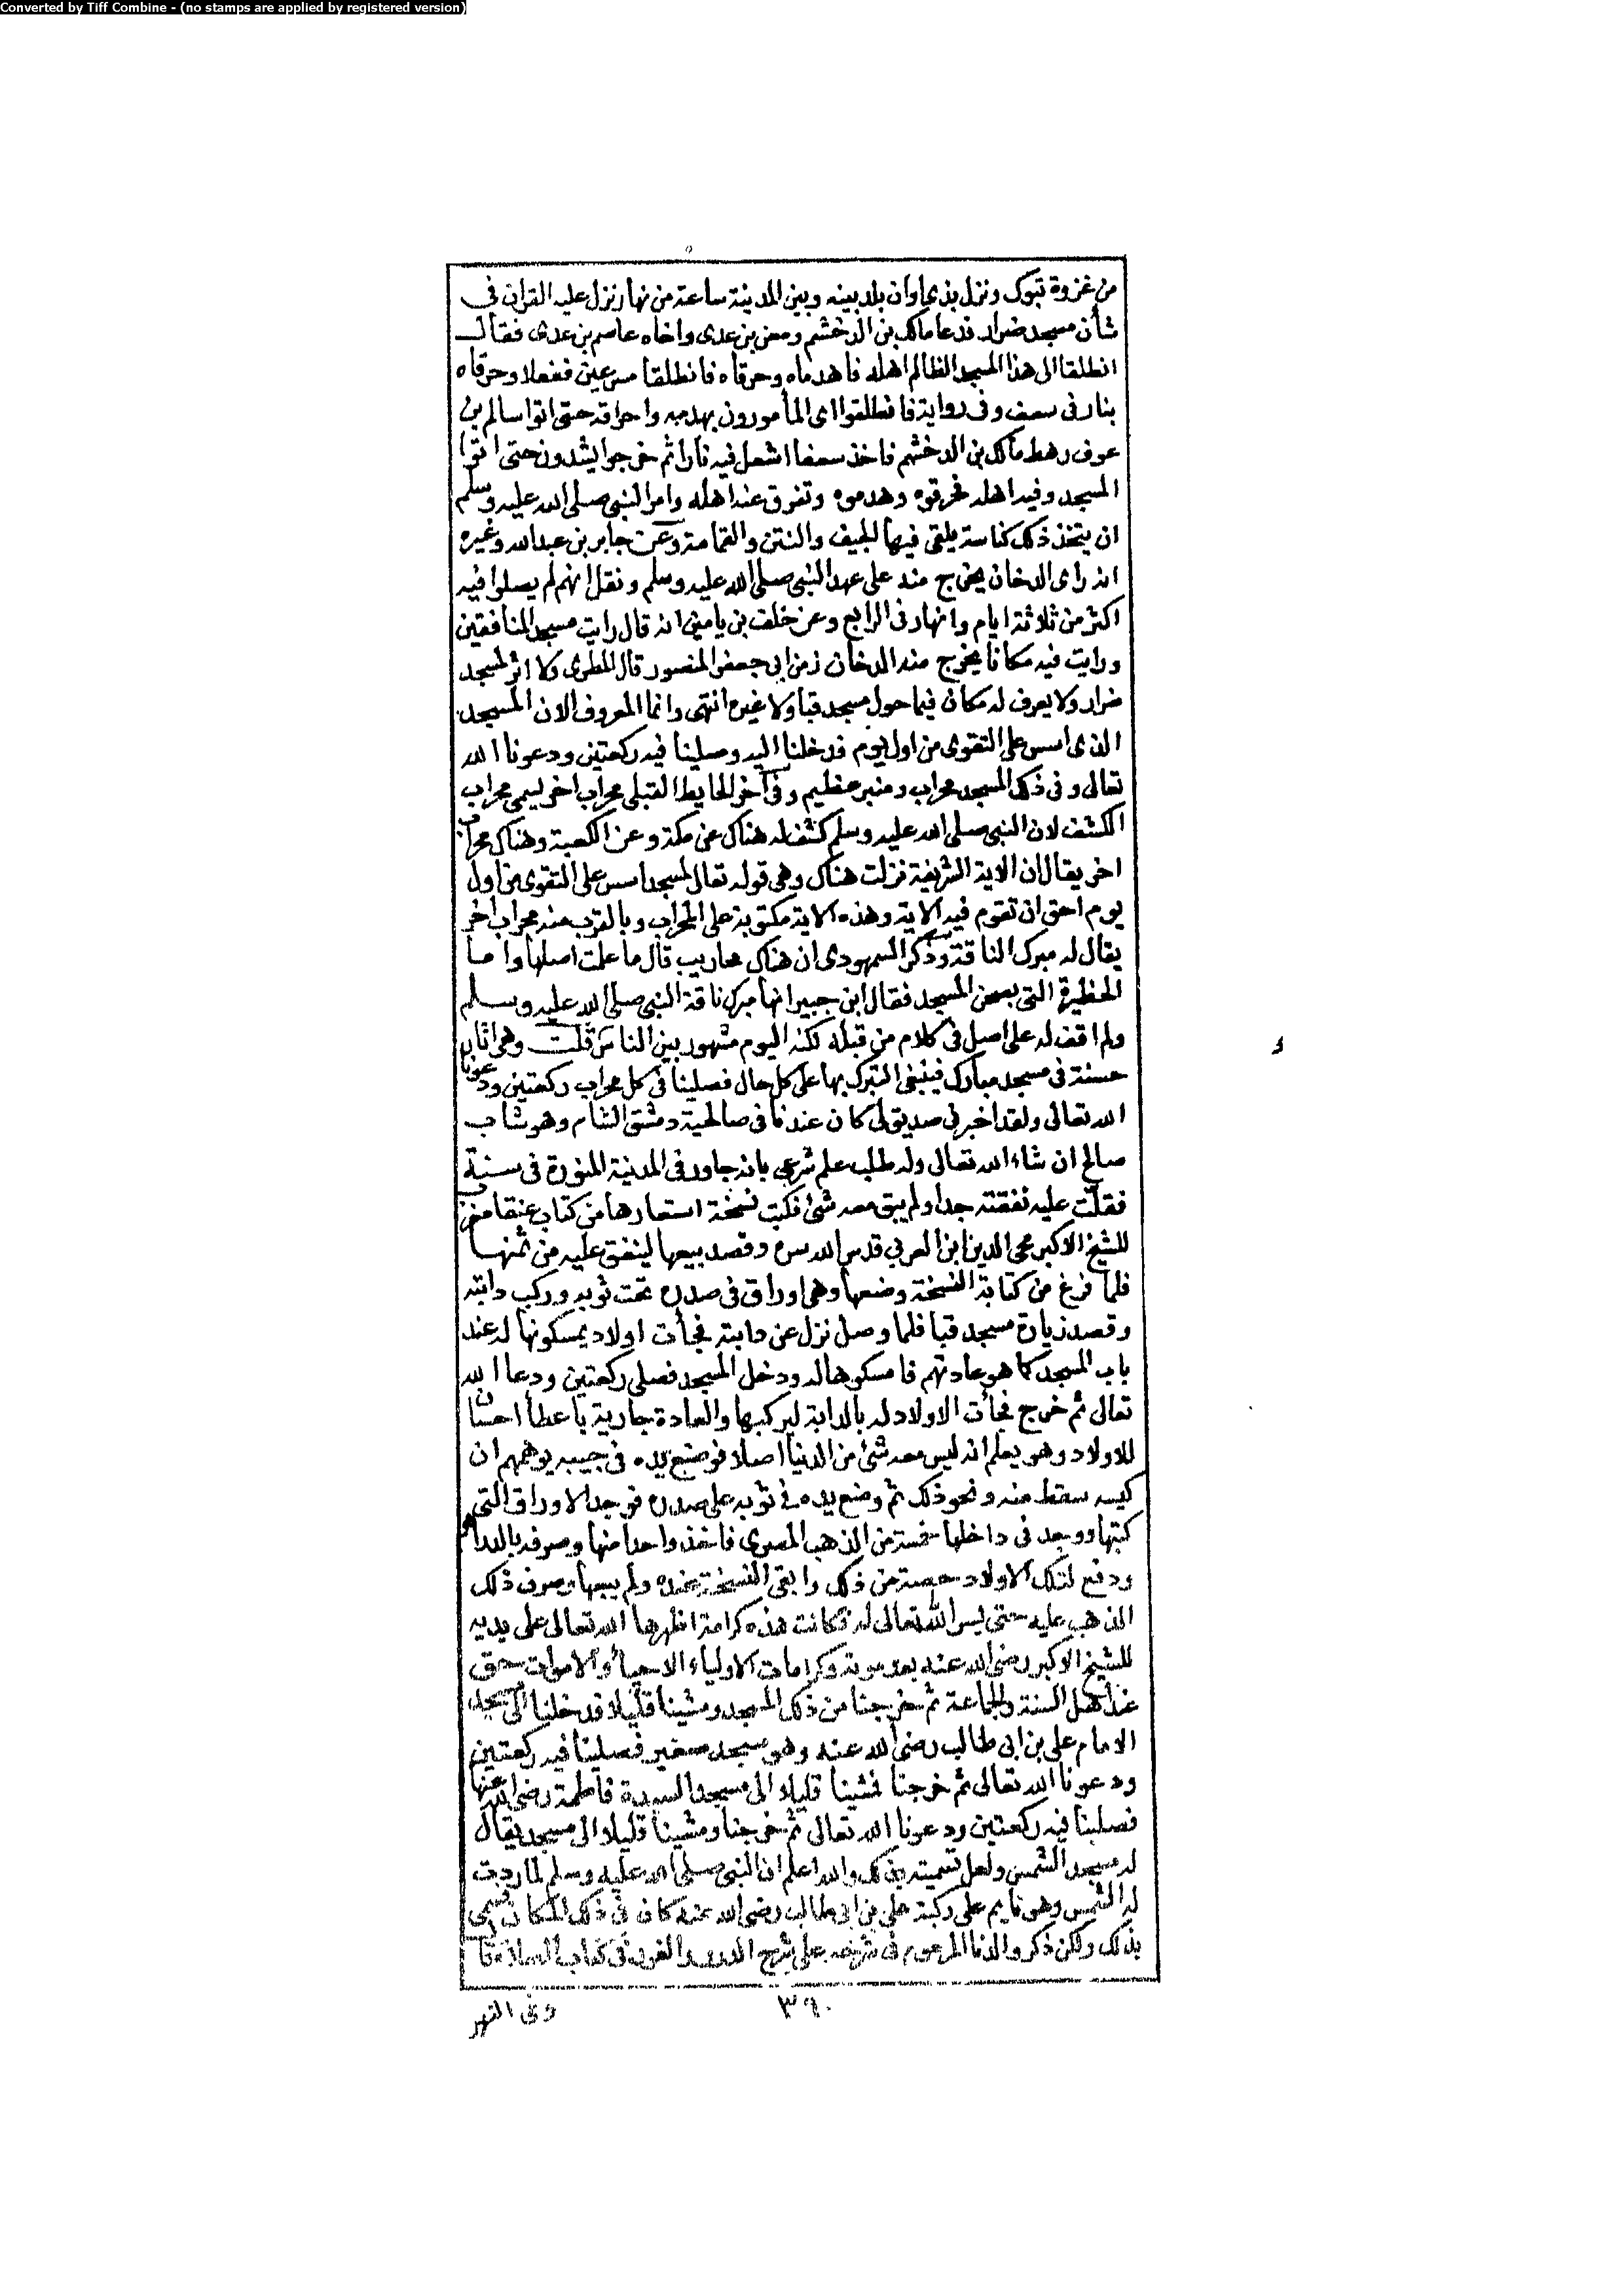 Converted by Tiff Combine - (no stamps are applied by registered version)
من غزوة تبوك ونزل بذى اوان بلد بينه وبين المدينة ساعة من نهار نزل عليه القران فى
شأن مسجد ضرار فدعا مالك بن الدخشم ومعن بن عدى واخاه عاصم بن عدى فقال
انطلقا الى هذا المسجد الظالم اهله فاهدماه وحرقاه فانطلقا مسرعين ففعلا وحرقاه
بنار فى سعف وفى رواية فانطلقوا اى المأمورون بهدمه واحراقه حتى اتوا سالم بن
عوف رهط مالك بن الدخشم فاخذ سعفا اشعل فيه نارا ثم خرجوا يشدون حتى اتوا
المسجد وفيه اهله فحرقوه وهدموه وتفرق عنه اهله وامر النبى صلى الله عليه وسلم
ان يتخذ ذلك كناسة يلقى فيها الجيف والنتن والقمامة وعن جابر بن عبد الله وغيره
انه راى الدخان يخرج منه على عهد النبى صلى الله عليه وسلم ونقل انهم لم يصلوا فيه
اكثر من ثلاثة ايام وانهار فى الرابع وعن خلف بن يامين انه قال رايت مسجد المنافقين
ورايت فيه مكانا يخرج منه الدخان زمن ابى جعفر المنصور قال المطرى ولا اثر لمسجد
ضرار ولا يعرف له مكان فيما حول مسجد قبا ولا غيره انتهى وانما المعروف الان المسجد
الذى اسس على التقوى من اول يوم فدخلنا اليه وصلينا فيه ركعتين ودعونا الله
تعالى وفى ذلك المسجد محراب ومنبر عظيم وفى آخر الحايط القبلى محراب اخر يسمى محراب
الكشف لان النبى صلى الله عليه وسلم كشف له هناك عن مكة وعن الكعبة وهناك محراب
اخر يقال ان الاية الشريفة نزلت هناك وهى قوله تعالى لمسجد اسس على التقوى من اول
يوم احق ان تقوم فيه الاية وهذه الاية مكتوبة على المحراب وبالقرب منه محراب اخر
يقال له مبرك الناقة وذكر السمهودى ان هناك محاريب قال ما علمت اصلها واما
الحظيرة التى بصحن المسجد فقال ابن جبير انها مبرك ناقة النبى صلى الله عليه وسلم
ولم اقف له على اصل فى كلام من قبله لكنه اليوم مشهور بين الناس قلت وهى اثار
حسنة فى مسجد مبارك فينبغى التبرك بها على كل حال فصلينا فى كل محراب ركعتين ودعونا
الله تعالى ولقد اخبرنى صديق لى كان عندنا فى صالحية دمشق الشام وهو شاب
صالح ان شاء الله تعالى وله طلب علم شرعى بانه جاور فى المدينة المنورة فى سنة
فقلت عليه نفقته جدا ولم يبق معه شئ فكتب نسخة استعارها من كتاب عنقا مغرب
للشيخ الاكبر محى الدين ابن العربى قدس الله سره وقصد بيعها لينفق عليه من ثمنها
فلما فرغ من كتابة النسخة وضعها وهى اوراق فى صدره تحت ثوبه وركب دابته
وقصد زيارة مسجد قبا فلما وصل نزل عن دابته فجأت اولاد يمسكونها له عند
باب المسجد كما هو عادتهم فامسكوها له ودخل المسجد فصلى ركعتين ودعا الله
تعالى ثم خرج فجأت الاولاد له بالدابة ليركبها والعادة جارية باعطأ احسان
للاولاد وهو يعلم انه ليس معه شئ من الدنيا اصلا فوضع يده فى جيبه يوهمهم ان
كيسه سقط منه ونحو ذلك ثم وضع يده فى ثوبه على صدره فوجد الاوراق التى
كتبها ووجد فى داخلها خمسة من الذهب المصرى فاخذ واحدا منها وصرفه بالدراهم
ودفع لتلك الاولاد حصة من ذلك وابقى النسخة عنده ولم يبعها وصرف ذلك
الذهب عليه حتى يسر الله تعالى له فكانت هذه كرامة اظهرها الله تعالى على يديه
للشيخ الاكبر رضى الله عنه بعد موته وكرامات الاولياء الاحيأ والاموات حق
عند اهل السنة والجماعة ثم خرجنا من ذلك المسجد ومشينا قليلا فدخلنا الى مسجد
الامام على بن ابى طالب رضى الله عنه وهو مسجد صغير فصلينا فيه ركعتين
ودعونا الله تعالى ثم خرجنا فمشينا قليلا الى مسجد السيدة فاطمة رضى الله عنها
فصلينا فيه ركعتين ودعونا الله تعالى ثم خرجنا ومشينا قليلا الى مسجد يقال
له مسجد الشمس ولعل تسميته بذلك والله اعلم ان النبى صلى الله عليه وسلم لما ردت
له الشمس وهو نايم على ركبة على بن ابى طالب رضى الله عنه كان فى ذلك المكان فسمى
بذلك ولكن ذكر والدنا المرحوم فى شرحه على شرح الدرر والغرر فى كتاب الصلاة قا
٣٦٠
وفى النهر